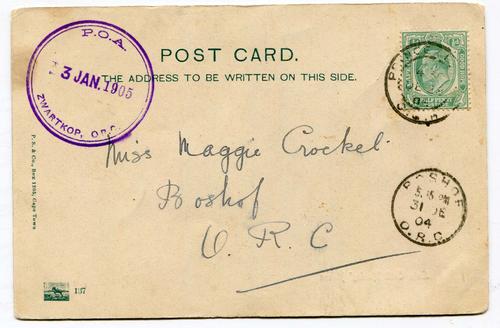 P.O.A.
3 JAN. 1905
ZWARTKOP, O.R.C.
POST CARD.
THE ADDRESS TO BE WRITTEN ON THIS SIDE.
HALF PENNY
Miss Maggie Crockel.
Boshof
O. R. C
BOSHOF
5.15 PM
31 DE
04
O.R.C.
P. S. & Co., Box 1253, Cape Town
137